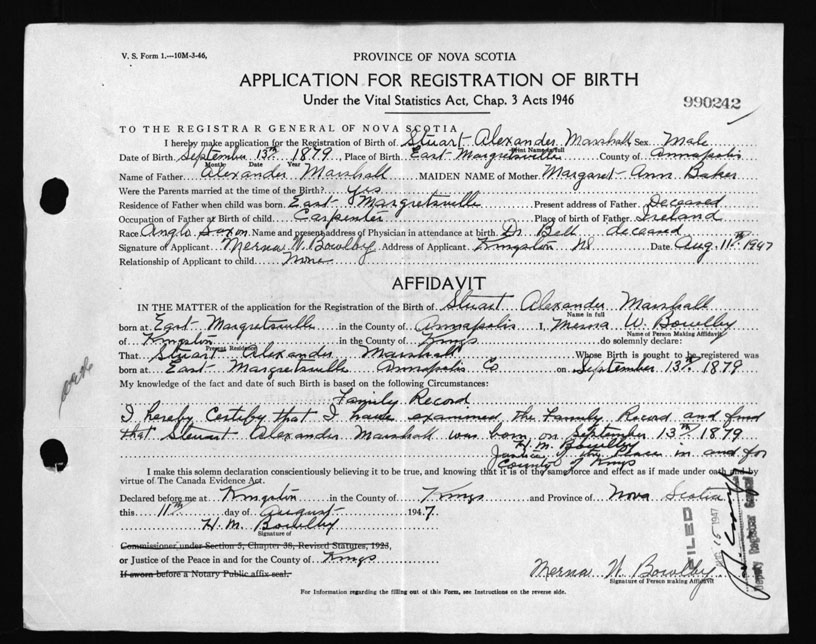 V. S. Form 1.—10M-3-46,
PROVINCE OF NOVA SCOTIA
APPLICATION FOR REGISTRATION OF BIRTH
Under the Vital Statistics Act, Chap. 3 Acts 1946
990242
TO THE REGISTRAR GENERAL OF NOVA SCOTIA
I hereby make application for the Registration of Birth of Stuart Alexander Marshall Sex Male
Print Name in full
Date of Birth September 13th 1879 Place of Birth East Margretsville County of Annapolis
Month Date Year
Name of Father Alexander Marshall MAIDEN NAME of Mother Margaret Ann Baker
Were the Parents married at the time of the Birth? yes
Residence of Father when child was born East Margretsville Present address of Father Deceased
Occupation of Father at Birth of child Carpenter Place of birth of Father Ireland
Race Anglo Saxon Name and present address of Physician in attendance at birth Dr Bell deceased
Signature of Applicant Merna W. Bowlby Address of Applicant Kingston NS Date Aug. 11th 1947
Relationship of Applicant to child None
AFFIDAVIT
IN THE MATTER of the application for the Registration of the Birth of Stuart Alexander Marshall
Name in full
born at East Margretsville in the County of Annapolis I, Merna W. Bowlby
Name of Person Making Affidavit
of Kingston in the County of Kings do solemnly declare:
Present Residence
That Stuart Alexander Marshall Whose Birth is sought to be registered was
born at East Margretsville Annapolis Co on September 13th 1879
My knowledge of the fact and date of such Birth is based on the following Circumstances:
Family Record
I hereby Certify that I have examined the Family Record and find
that Steuart Alexander Marshall was born on September 13th 1879
H. M. Bowlby
Justice of the Peace in and for
County of Kings
I make this solemn declaration conscientiously believing it to be true, and knowing that it is of the same force and effect as if made under oath and by
virtue of The Canada Evidence Act.
Declared before me at Kingston in the County of Kings and Province of Nova Scotia
this 11th day of August 1947.
H. M. Bowlby
Signature of
Commissioner under Section 5, Chapter 38, Revised Statutes, 1923,
or Justice of the Peace in and for County of Kings
If sworn before a Notary Public affix seal.
FILED
15 1947
Deputy Registrar General
Merna W. Bowlby
Signature of Person making Affidavit
For Information regarding the filling out of this Form, see Instructions on the reverse side.